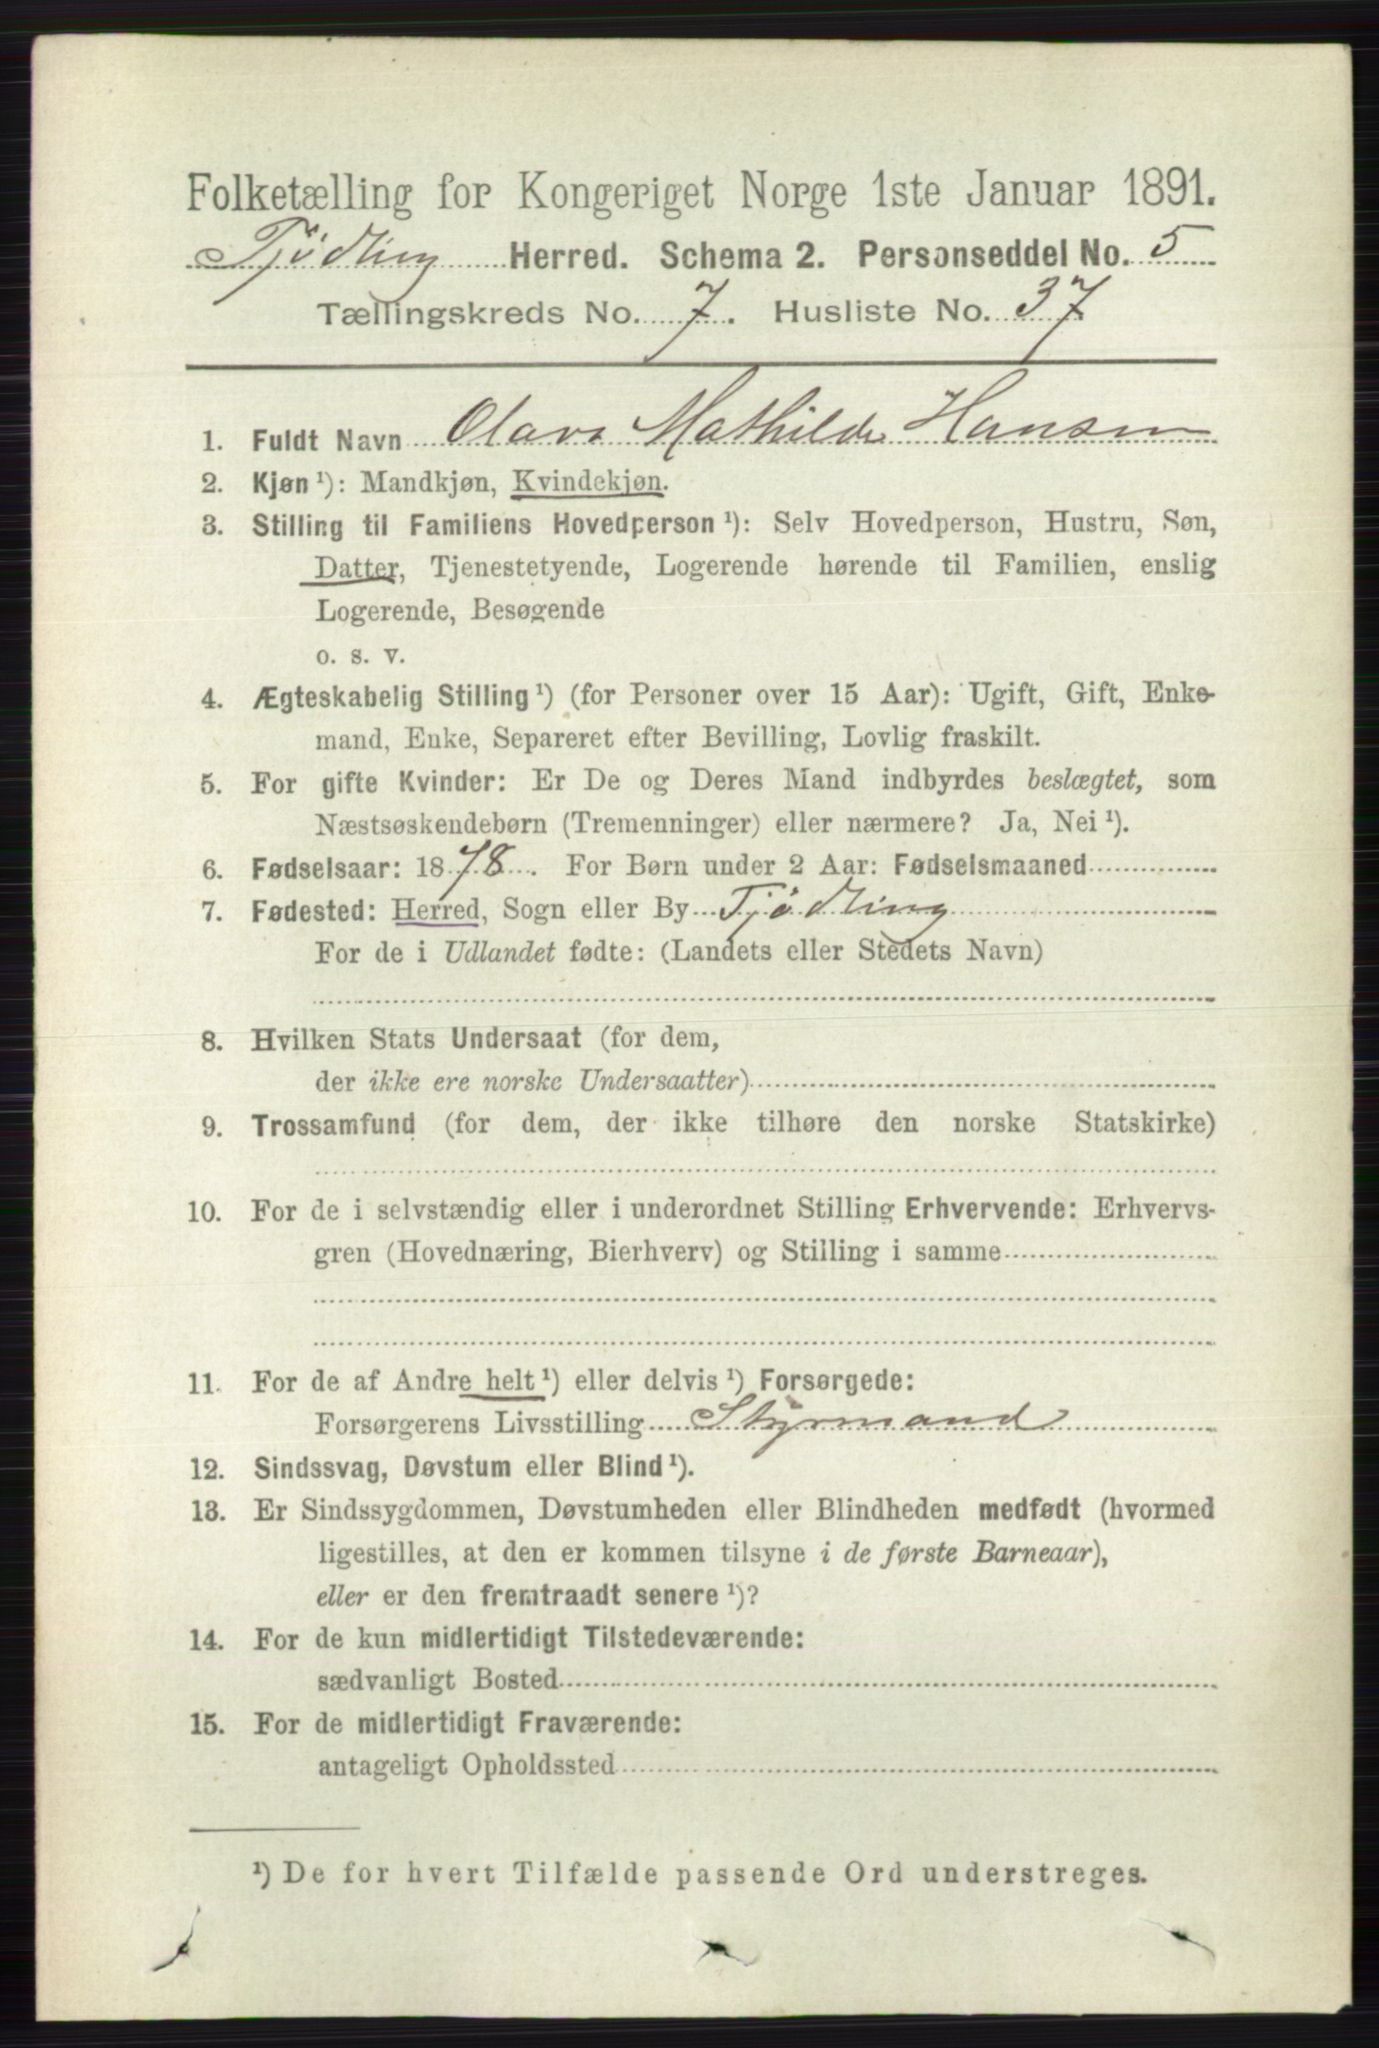 Folketælling for Kongeriget Norge 1ste Januar 1891.
Tjødling Herred. Schema 2. Personseddel No. 5
Tællingskreds No. 7. Husliste No. 37
1. Fuldt Navn Olava Mathilde Hansen
2. Kjøn ¹): Mandkjøn, Kvindekjøn.
3. Stilling til Familiens Hovedperson ¹): Selv Hovedperson, Hustru, Søn,
Datter, Tjenestetyende, Logerende hørende til Familien, enslig
Logerende, Besøgende
o. s. v.
4. Ægteskabelig Stilling ¹) (for Personer over 15 Aar): Ugift, Gift, Enke-
mand, Enke, Separeret efter Bevilling, Lovlig fraskilt.
5. For gifte Kvinder: Er De og Deres Mand indbyrdes beslægtet, som
Næstsøskendebørn (Tremenninger) eller nærmere? Ja, Nei ¹).
6. Fødselsaar: 1878. For Børn under 2 Aar: Fødselsmaaned
7. Fødested: Herred, Sogn eller By Tjødling
For de i Udlandet fødte: (Landets eller Stedets Navn)
8. Hvilken Stats Undersaat (for dem,
der ikke ere norske Undersaatter)
9. Trossamfund (for dem, der ikke tilhøre den norske Statskirke)
10. For de i selvstændig eller i underordnet Stilling Erhvervende: Erhvervs-
gren (Hovednæring, Bierhverv) og Stilling i samme
11. For de af Andre helt ¹) eller delvis ¹) Forsørgede:
Forsørgerens Livsstilling Styrmand
12. Sindssvag, Døvstum eller Blind ¹).
13. Er Sindssygdommen, Døvstumheden eller Blindheden medfødt (hvormed
ligestilles, at den er kommen tilsyne i de første Barneaar),
eller er den fremtraadt senere ¹)?
14. For de kun midlertidigt Tilstedeværende:
sædvanligt Bosted
15. For de midlertidigt Fraværende:
antageligt Opholdssted
¹) De for hvert Tilfælde passende Ord understreges.